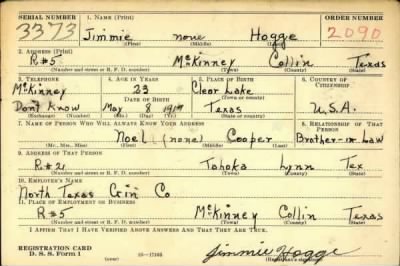 SERIAL NUMBER 1. NAME (Print) ORDER NUMBER
3373 Jimmie none Hogge 2090
(First) (Middle) (Last)
2. ADDRESS (Print)
R#5 McKinney Collin Texas
(Number and street or R. F. D. number) (Town) (County) (State)
3. TELEPHONE 4. AGE IN YEARS 5. PLACE OF BIRTH 6. COUNTRY OF CITIZENSHIP
McKinney 23 Clear Lake
DATE OF BIRTH (Town or county)
Don't Know May 8 1917 Texas U.S.A.
(Exchange) (Number) (Mo.) (Day) (Yr.) (State or country)
7. NAME OF PERSON WHO WILL ALWAYS KNOW YOUR ADDRESS 8. RELATIONSHIP OF THAT PERSON
Noel (none) Cooper Brother-in Law
(Mr., Mrs., Miss) (First) (Middle) (Last)
9. ADDRESS OF THAT PERSON
R#21 Tahoka Lynn Tex
(Number and street or R. F. D. number) (Town) (County) (State)
10. EMPLOYER'S NAME
North Texas Gin Co
11. PLACE OF EMPLOYMENT OR BUSINESS
R#5 McKinney Collin Texas
(Number and street or R. F. D. number) (Town) (County) (State)
I AFFIRM THAT I HAVE VERIFIED ABOVE ANSWERS AND THAT THEY ARE TRUE.
REGISTRATION CARD
D. S. S. Form 1 (over) Jimmie Hogge